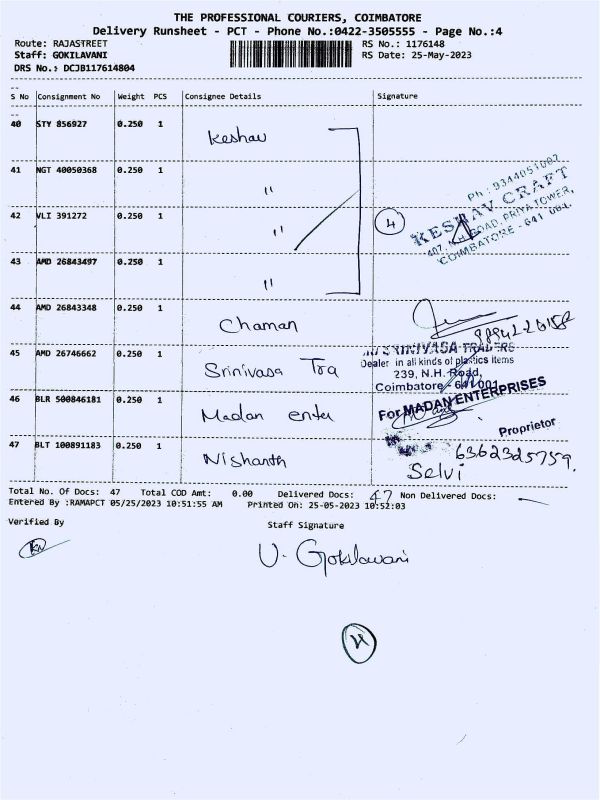 THE PROFESSIONAL COURIERS, COIMBATORE
Delivery Runsheet - PCT - Phone No.:0422-3505555 - Page No.:4
Route: RAJASTREET RS No.: 1176148
Staff: GOKILAVANI RS Date: 25-May-2023
DRS No.: DCJB117614804
S No Consignment No Weight PCS Consignee Details Signature
40 STY 856927 0.250 1 Keshav
41 NGT 40050368 0.250 1 "
Ph : 9344051007
KESHAV CRAFT
407, N.H ROAD, PRIYA TOWER,
COIMBATORE - 641 001.
42 VLI 391272 0.250 1 " 4
43 AMD 26843497 0.250 1 "
44 AMD 26843348 0.250 1 Chaman
45 AMD 26746662 0.250 1 Srinivasa Tra
SRINIVASA TRADERS
Dealer in all kinds of plastics items
239, N.H. Road,
Coimbatore - 641001
46 BLR 500846181 0.250 1 Madan enter
For MADAN ENTERPRISES
Proprietor
47 BLT 100891183 0.250 1 Nishanth
6362325759.
Selvi
Total No. Of Docs: 47 Total COD Amt: 0.00 Delivered Docs: 47 Non Delivered Docs: —
Entered By :RAMAPCT 05/25/2023 10:51:55 AM Printed On: 25-05-2023 10:52:03
Verified By Staff Signature
V. Gokilavani